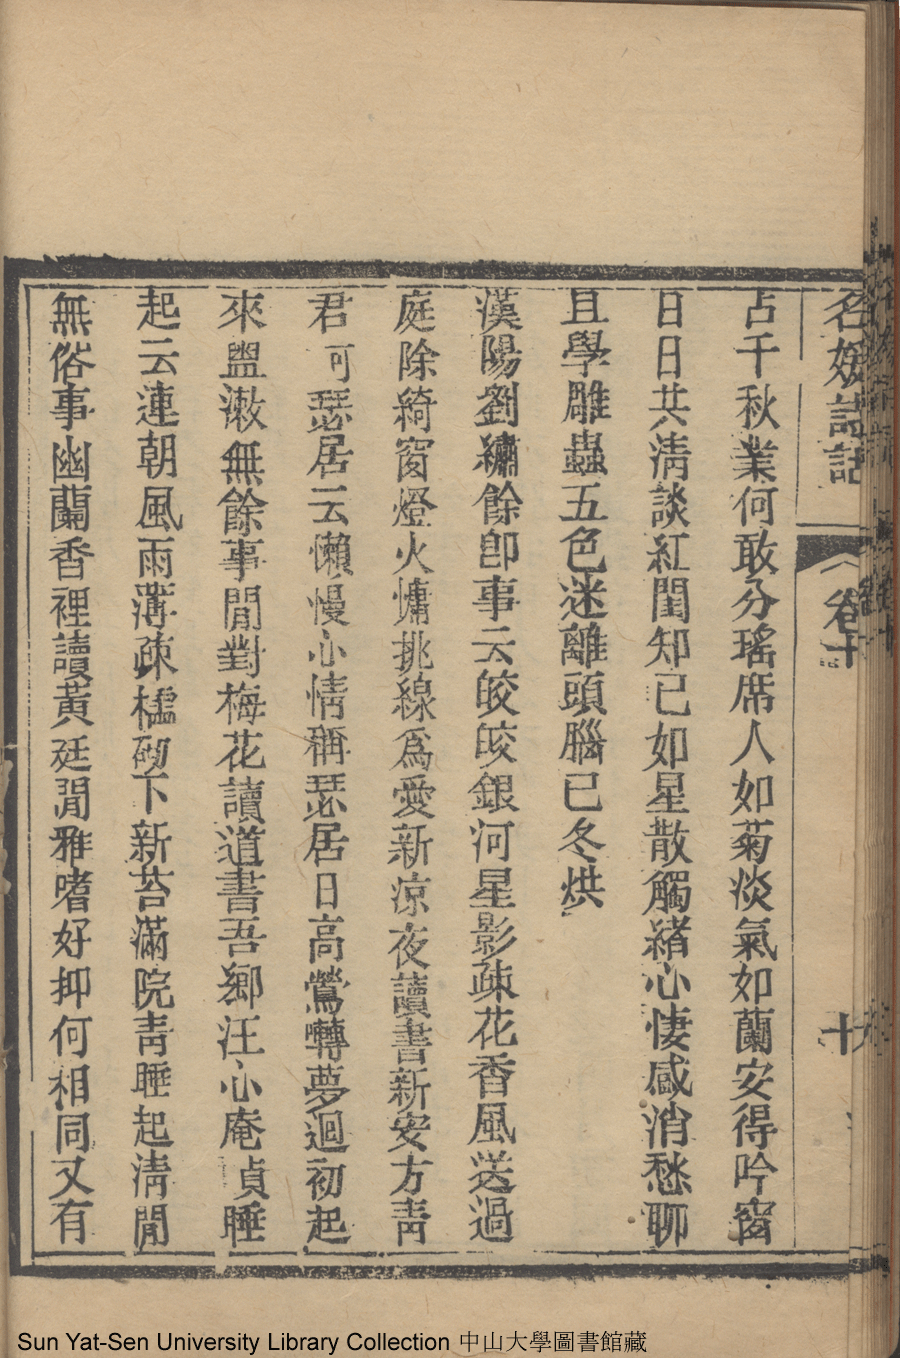 名媛詩話
卷十
十
占千秋業何敢分瑤席人如菊淡氣如蘭安得吟窗
日日共淸談紅閨知已如星散觸緖心悽感消愁聊
且學雕蟲五色迷離頭腦已冬烘
漢陽劉繡餘卽事云皎皎銀河星影疎花香風送過
庭除綺窗燈火慵挑線爲愛新涼夜讀書新安方靑
君可瑟居云懶慢心情稱瑟居日高鶯囀夢迴初起
來盥漱無餘事閒對梅花讀道書吾鄉汪心庵貞睡
起云連朝風雨薄疎櫺砌下新苔滿院靑睡起淸閒
無俗事幽蘭香裡讀黃廷閒雅嗜好抑何相同又有
Sun Yat-Sen University Library Collection 中山大學圖書館藏